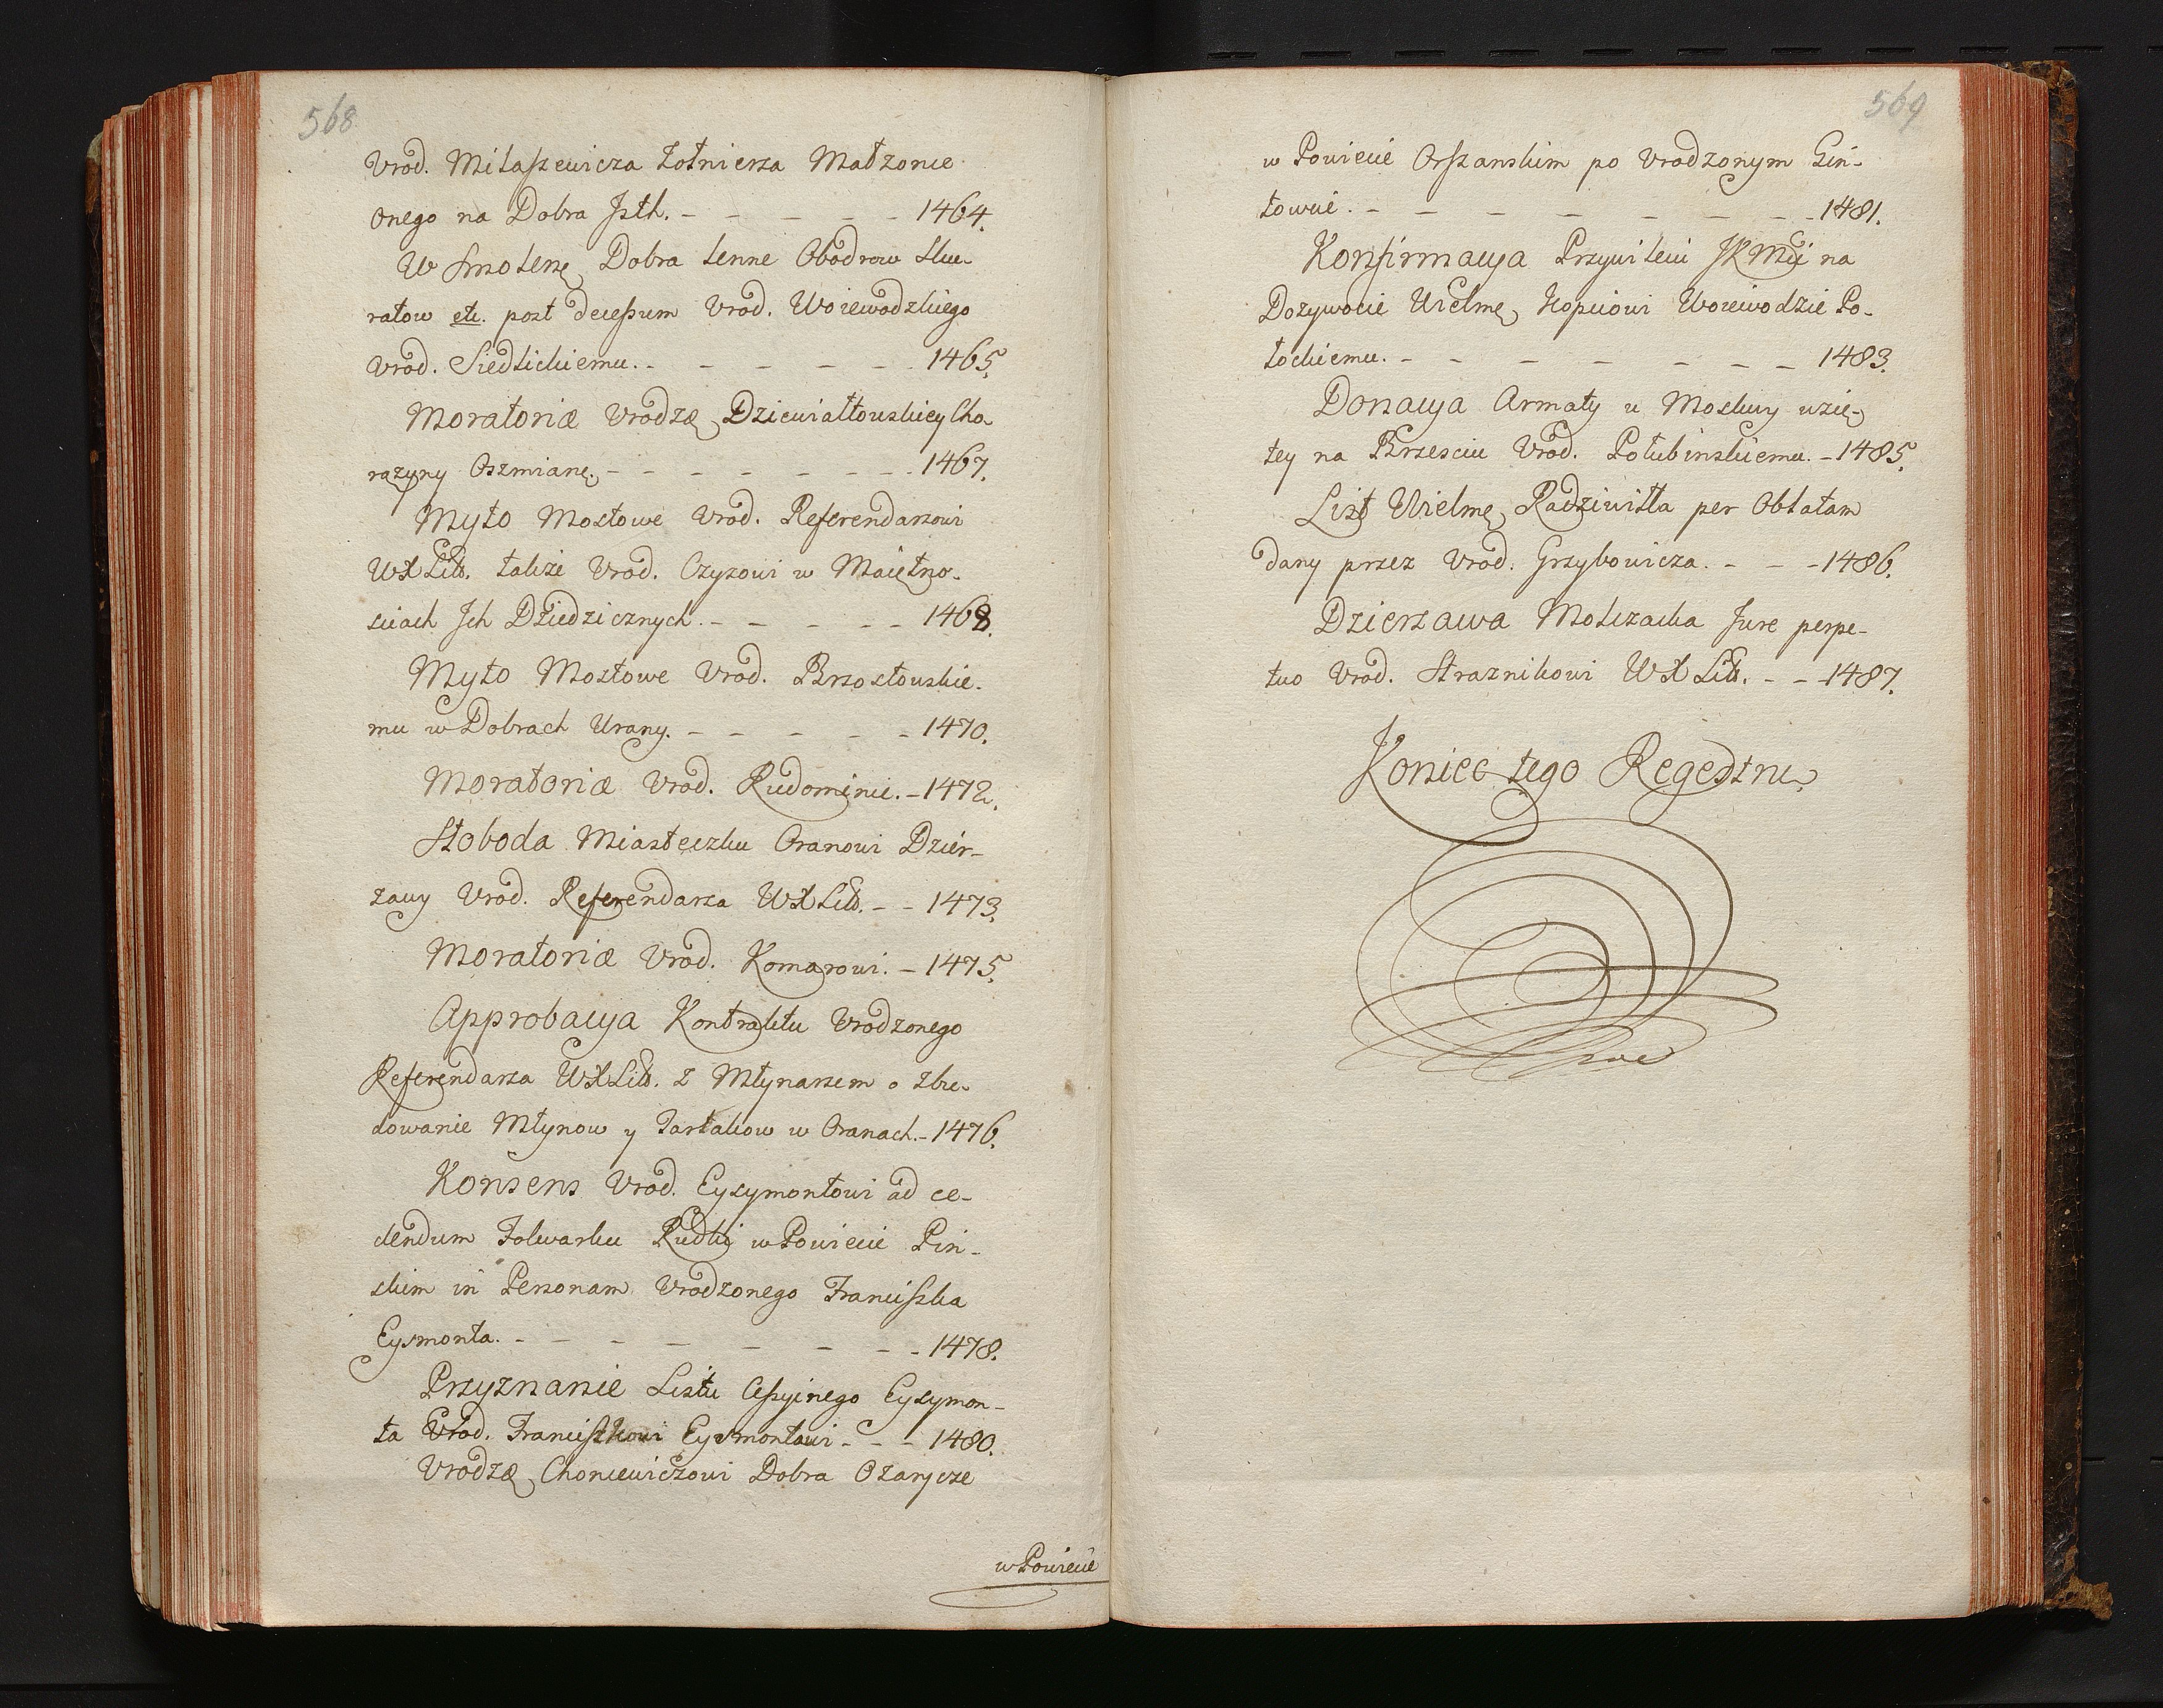 568
Urod. Milaszewicza Zołnierza Małzonce
onego na Dobra Jsth. - - - - - 1464.
W Smolenę Dobra lenne Obodrow Sku-
ratow etc. post decessum Urod. Woiewodzkiego
Urod. Siedlickiemu. - - - - - 1465.
Moratoriæ Urodzę Dziewiałtowskiey Cho-
rązyny Oszmianę. - - - - - - 1467.
Myto Mostowe Urod. Referendarzowi
WXLitt. także Urod. Czyzowi w Maiętno-
sciach Jch Dziedzicznych. - - - - - 1468.
Myto Mostowe Urod. Brzostowskie-
mu w Dobrach Urany. - - - - - 1470.
Moratoriæ Urod. Rudominie. - 1472.
Słoboda Miasteczku Oranowi Dzier-
zawy Urod. Referendarza WXLitt. - - 1473.
Moratoriæ Urod. Komarowi. - 1475.
Approbacya Kontraktu Urodzonego
Referendarza WXLitt. z Młynarzem o zbu-
dowanie Młynow y Tartakow w Oranach. - 1476.
Konsens Urod. Eysymontowi ad ce-
dendum Folwarku Rudki w Powiecie Piń-
skim in Personam Urodzonego Franciszka
Eysmonta. - - - - - - - 1478.
Przyznanie Listu Cessyinego Eysymon-
ta Urod. Franciszkowi Eysmontowi - - - 1480.
Urodzę Choncewiczowi Dobra Ozarycze
w Powiecie
569
w Powiecie Orszanskim po Urodzonym Giń-
towcie. - - - - - - - 1481.
Konfirmacya Przywileiu JKMći na
Dozywocie Wielmę Hopciowi Woiewodzie Po-
łockiemu. - - - - - - - 1483.
Donacya Armaty u Moskwy wzię-
tey na Brzesciu Urod. Połubinskiemu. - 1485.
List Wielmę Radziwiłła per Oblatam
dany przez Urod. Grzybowicza. - - - 1486.
Dzierzawa Mołczacka Jure perpe-
tuo Urod. Straznikowi WXLitt. - - 1487.
Koniec tego Regestru.